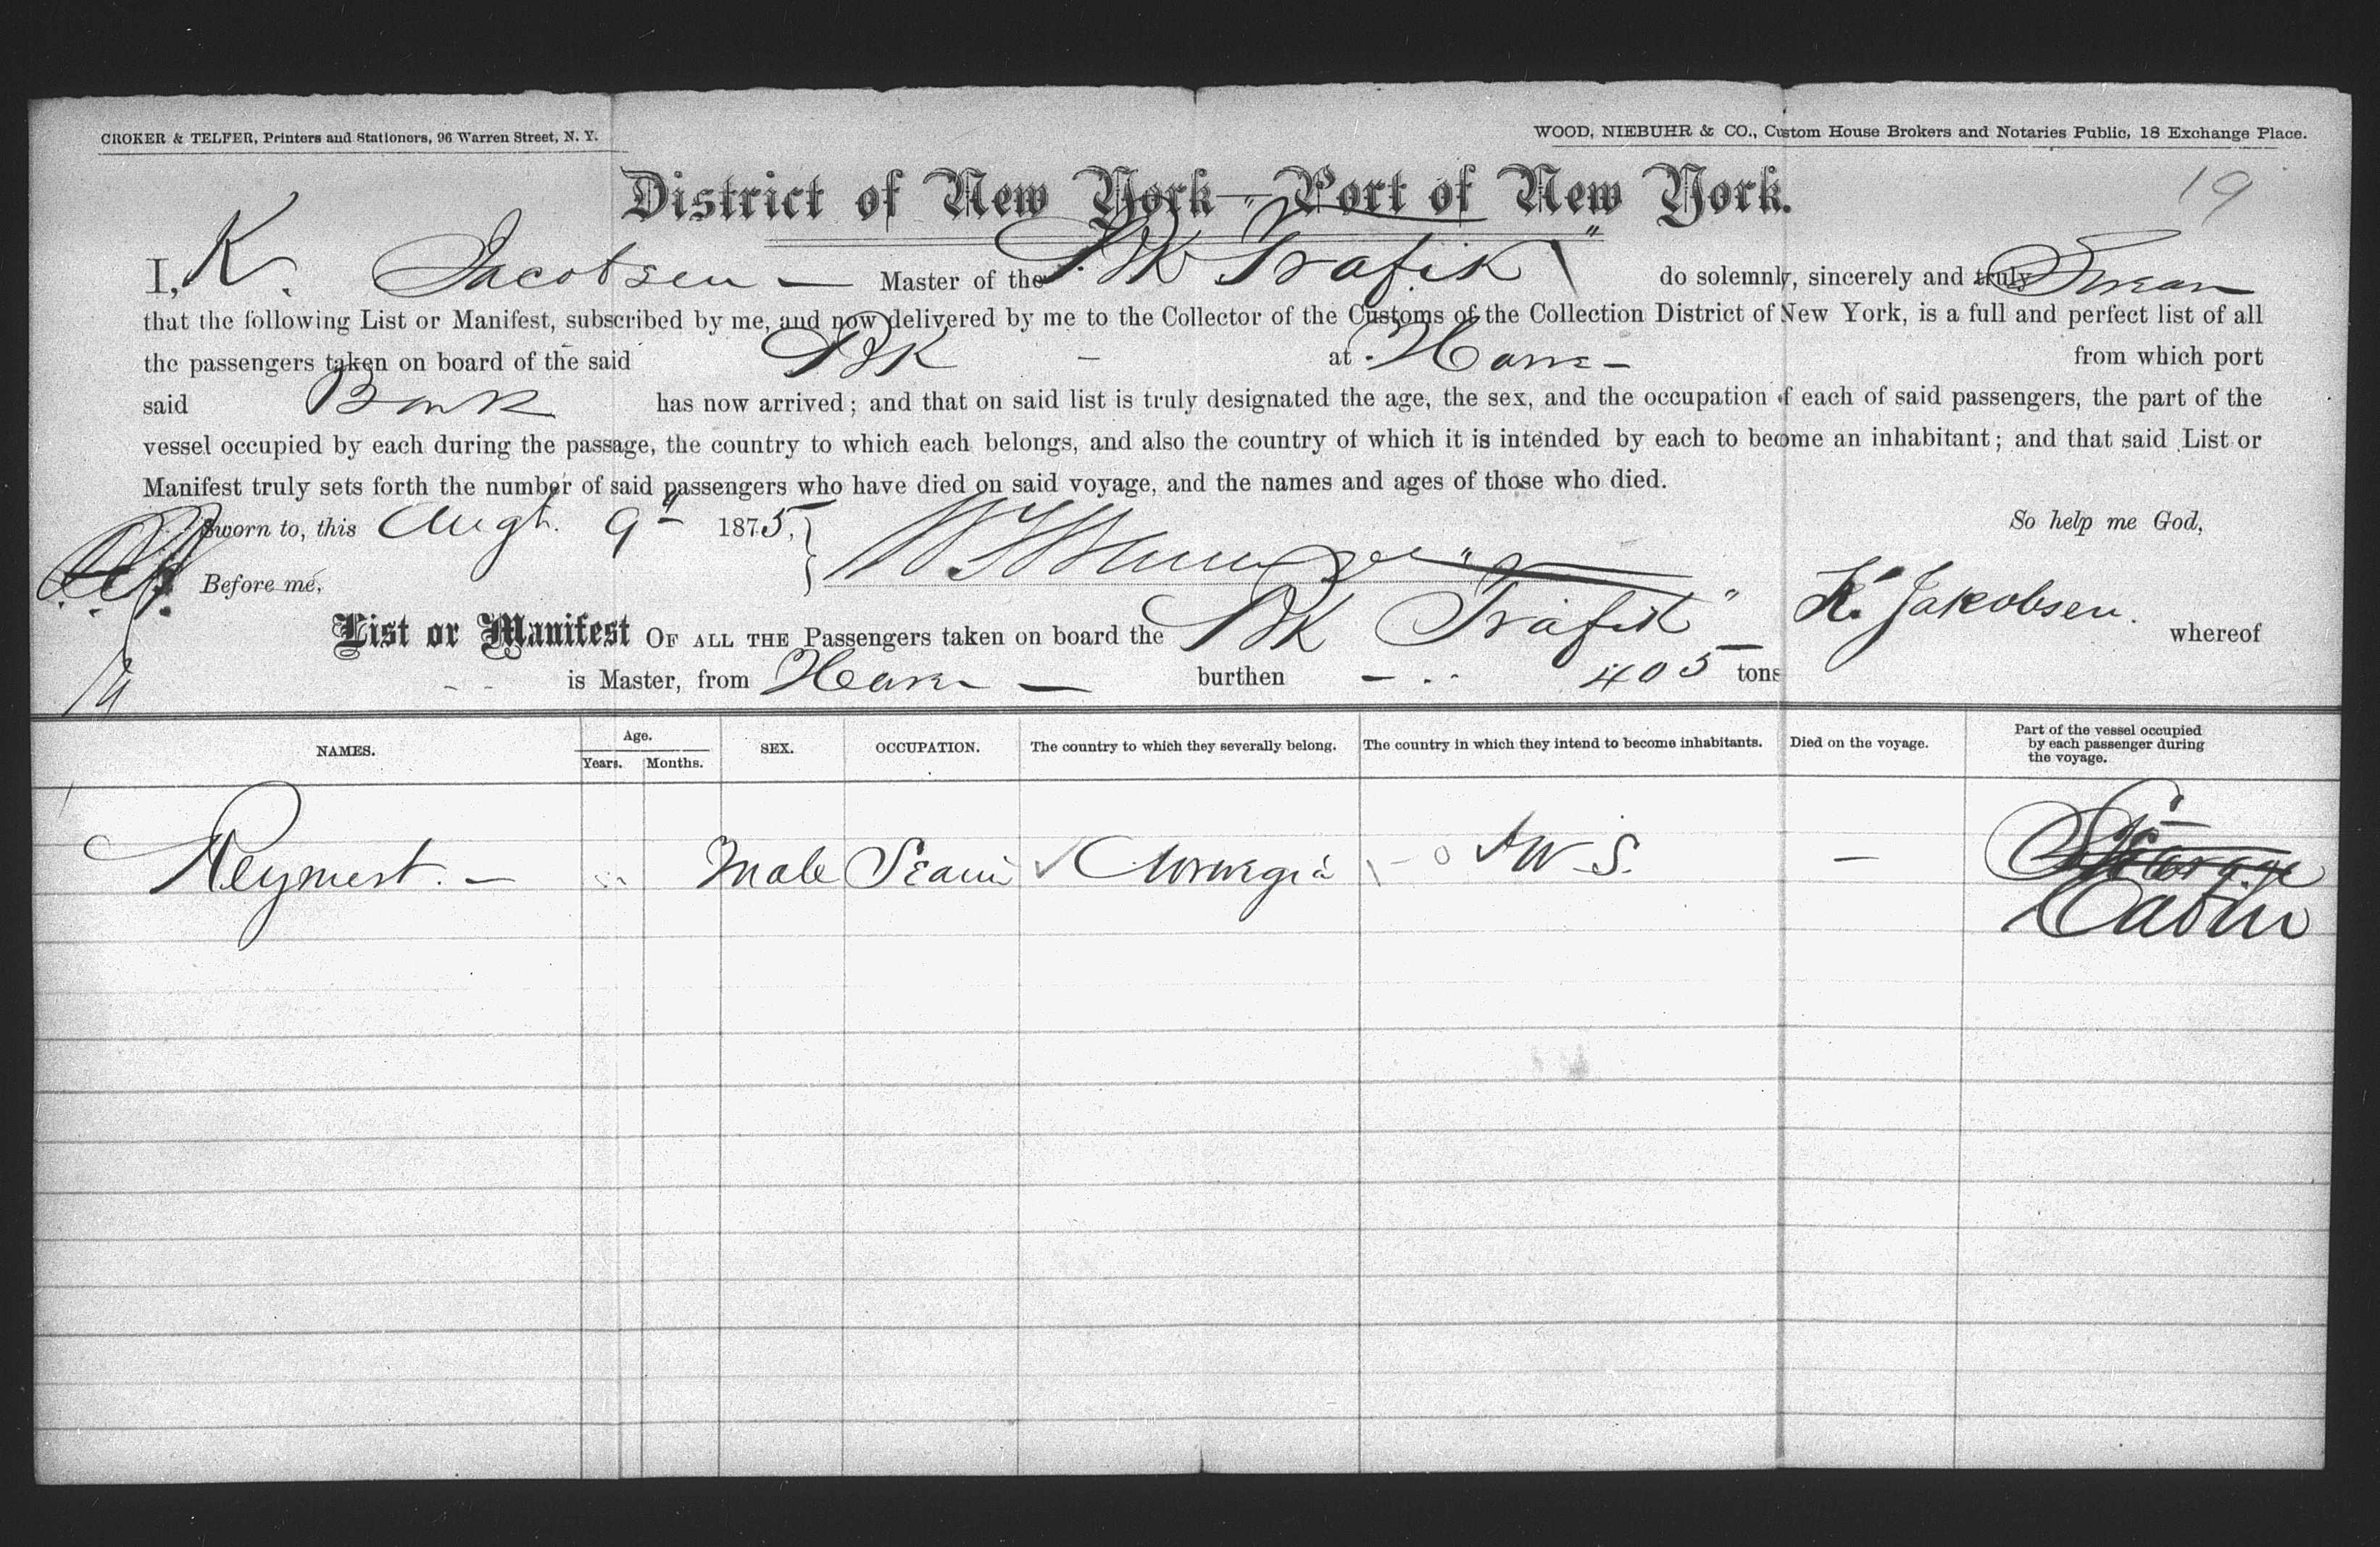 CROKER & TELFER, Printers and Stationers, 96 Warren Street, N. Y.
WOOD, NIEBUHR & CO., Custom House Brokers and Notaries Public, 18 Exchange Place.
19
District of New York—Port of New York.
I, K. Jacobsen — Master of the Bk "Trafik" do solemnly, sincerely and truly Swear
that the following List or Manifest, subscribed by me, and now delivered by me to the Collector of the Customs of the Collection District of New York, is a full and perfect list of all
the passengers taken on board of the said Bk — at from which port
said Bark has now arrived; and that on said list is truly designated the age, the sex, and the occupation of each of said passengers, the part of the
vessel occupied by each during the passage, the country to which each belongs, and also the country of which it is intended by each to become an inhabitant; and that said List or
Manifest truly sets forth the number of said passengers who have died on said voyage, and the names and ages of those who died.
Sworn to, this Augt. 9" 1875, So help me God,
Before me, K. Jakobsen.
List or Manifest OF ALL THE Passengers taken on board the Bk "Trafik" — whereof
is Master, from — burthen — 405 tons
NAMES. Age. Years. Months. SEX. OCCUPATION. The country to which they severally belong. The country in which they intend to become inhabitants. Died on the voyage. Part of the vessel occupied by each passenger during the voyage.
Male — Cabin